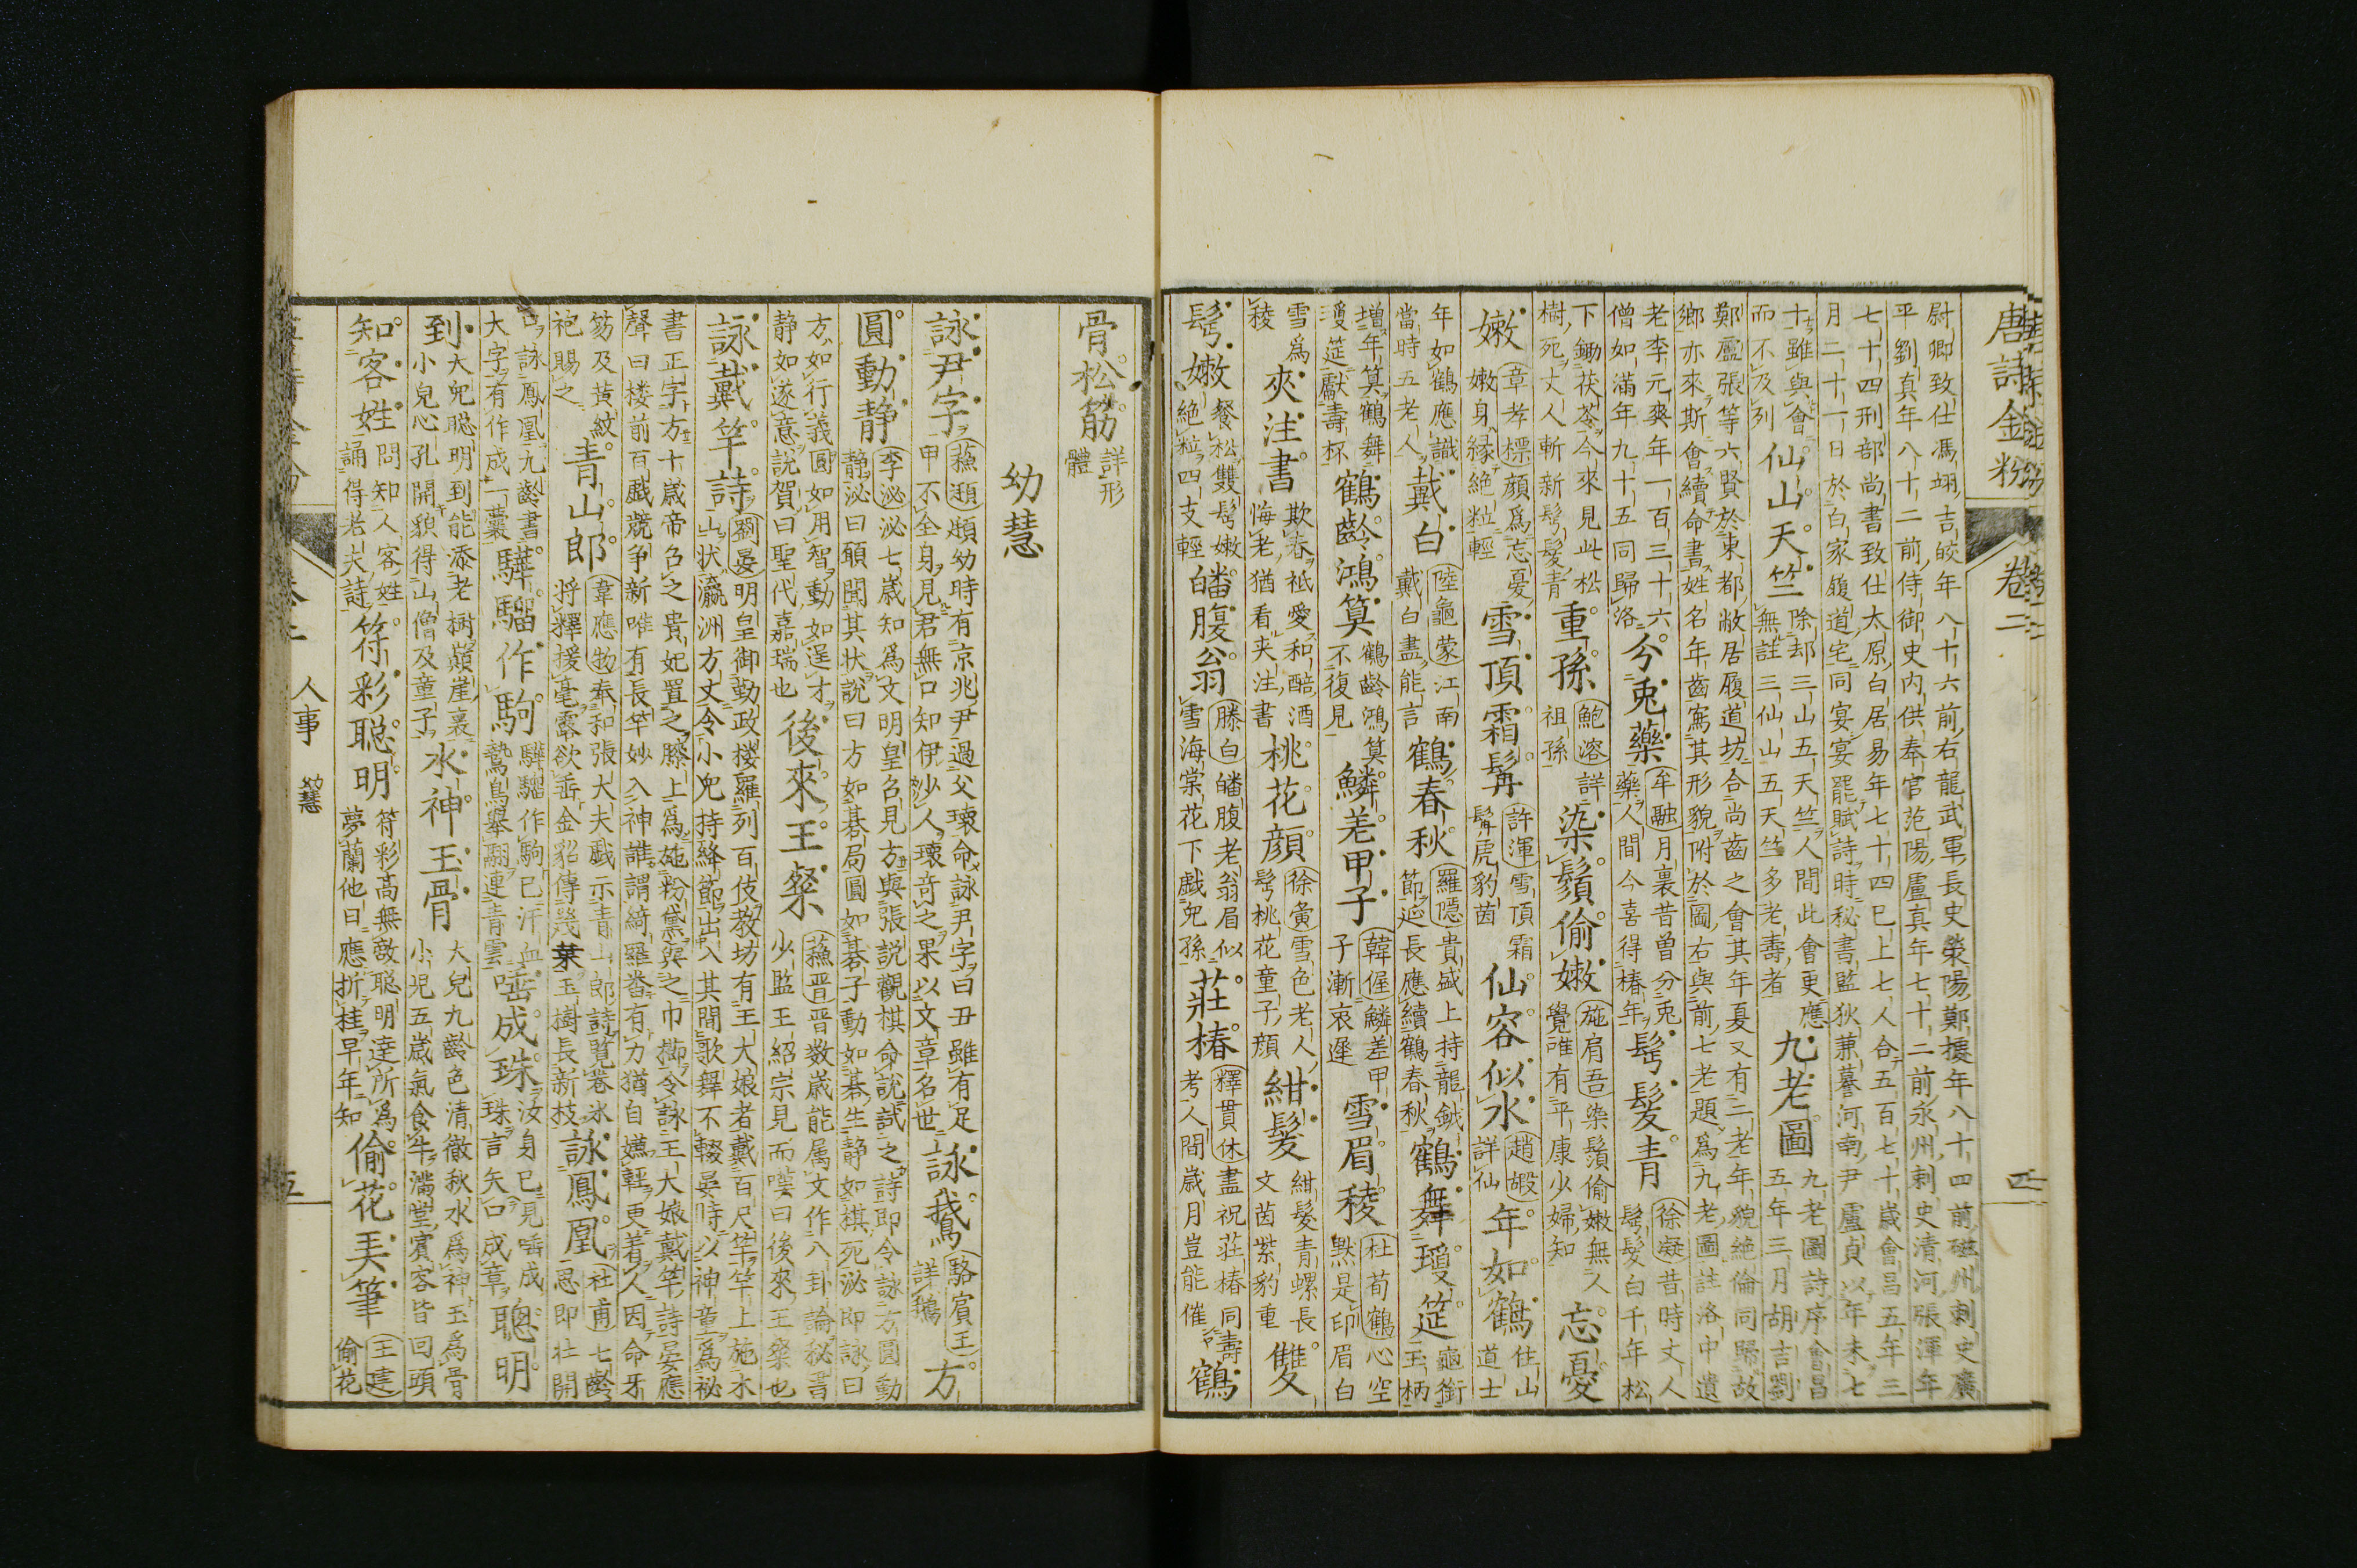 唐詩金粉 卷二 四
尉卿致仕馮翊吉皎年八十六前右龍武軍長史滎陽鄭據年八十四前磁州刺史廣
平劉真年八十二前侍御史内供奉官范陽盧真年七十二前永州刺史清河張渾年
七十四刑部尚書致仕太原白居易年七十四已上七人合五百七十歲會昌五年三
月二十一日於白家履道宅同宴宴罷賦詩時秘書監狄兼謩河南尹盧貞以年未七
十雖與會
而不及列
仙山天竺
除却三山五天竺人間此會更應
無註三仙山五天竺多老壽者
九老圖
九老圖詩序會昌
五年三月胡吉劉
鄭盧張等六賢於東都敝居履道坊合尚齒之會其年夏又有二老年貌絶倫同歸故
鄉亦來斯會續命書姓名年齒寫其形貌附於圖右與前七老題爲九老圖註洛中遺
老李元爽年一百三十六
僧如滿年九十五同歸洛
分兎藥
牟融月裏昔曽分兎
藥人間今喜得椿年
髩髮青
徐凝昔時丈人
髩髮白千年松
下鋤茯苓今來見此松
樹死丈人斬新髩髮青
重孫
鮑溶詳
祖孫
染鬚偷嫩
施肩吾染鬚偷嫩無人
覺唯有平康少婦知
忘憂
嫩
章孝標顔爲忘憂
嫩身縁絶粒輕
雪頂霜髯
許渾雪頂霜
髯虎豹茵
仙容似水
趙嘏
詳仙
年如鶴
住山
道士
年如鶴應識
當時五老人
戴白
陸龜蒙江南
戴白盡能言
鶴春秋
羅隱貴盛上持龍鉞
節延長應續鶴春秋
鶴舞瓊筵
龜銜
玉柄
増年算鶴舞
瓊筵獻壽杯
鶴齡鴻算
鶴齡鴻算
不復見
鱗差甲子
韓偓鱗差甲
子漸衰遲
雪眉稜
杜荀鶴心空
黙是印眉白
雪爲
稜
夾注書
欺春祗愛和醅酒
悔老猶看夾注書
桃花顔
徐夤雪色老人
髩桃花童子顔
紺髮
紺髮青螺長
文茵紫豹重
雙
髩嫩
餐松雙髩嫩
絶粒四支輕
皤腹翁
滕白皤腹老翁眉似
雪海棠花下戯兒孫
莊椿
釋貫休盡祝莊椿同壽
考人間歳月豈能催
鶴
骨松筋
詳形
體
幼慧
詠尹字
蘇頲頲幼時有京兆尹過父瓌命詠尹字曰丑雖有足
甲不全身見君無口知伊少人瓌奇之果以文章名世
詠鵞
駱賓王
詳鵞
方
圓動静
李泌泌七歳知爲文明皇召見方與張説觀棋命説試之詩即令詠方圓動
静泌曰願聞其状説曰方如碁局圓如碁子動如碁生静如棋死泌即詠曰
方如行義圓如用智動如逞才
静如遂意説賀曰聖代嘉瑞也
後來王粲
蘇晋晋数歳能属文作八卦論秘書
少監王紹宗見而嘆曰後來王粲也
詠戴竿詩
劉晏明皇御勤政楼羅列百伎教坊有王大娘者戴百尺竿竿上施木
山状瀛洲方丈令小兒持絳節出入其間歌舞不輟晏時以神童爲祕
書正字方十歳帝召之貴妃置之膝上爲施粉黛與之巾櫛令詠王大娘戴竿詩晏應
聲曰楼前百戯競争新唯有長竿妙入神誰謂綺羅畨有力猶自嫌輕更著人因命牙
笏及黄紋
袍賜之
青山郎
韋應物奉和張大夫戯示青山郎詩覧卷氷
将釋援毫露欲垂金貂傳幾葉玉樹長新枝
詠鳳凰
杜甫七齡
思即壮開
口詠鳳凰九齡書
大字有作成一囊
驊騮作駒
驊騮作駒已汗血
鷙鳥擧翮連青雲
唾成珠
汝身已見唾成
珠言矢口成章
聰明
到
大兒聡明到能添老樹巓崖裏
小兒心孔開貌得山僧及童子
水神玉骨
大兒九齡色清徹秋水爲神玉爲骨
小児五歳氣食牛滿堂賓客皆回頭
知客姓
問知人客姓
誦得老夫詩
符彩聡明
符彩高無敵聡明達所爲
夢蘭他日應折桂早年知
偷花美筆
王建
偷花
人事 幼慧 五